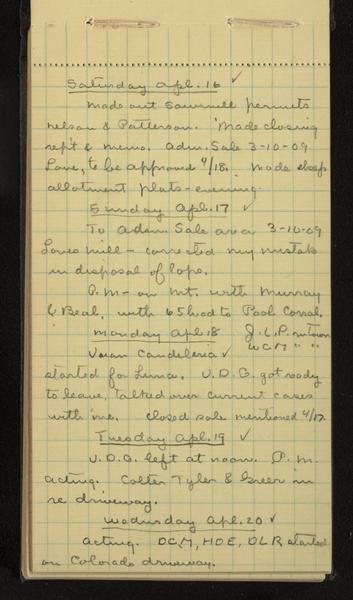 Saturday Apl. 16 ✓
Made out sawmill permits
Nelson & Patterson. Made closing
rep't & memo. Adm. Sale 3-10-09
Love, to be approved 4/18. Made sheep
allotment plats - evening.
Sunday Apl. 17 ✓
To Adm. Sale area 3-10-09
Loves mill - corrected my mistake
in disposal of lops.
P.M. - on Mt. with Murray
& Beal, with 65 hd to Pool Corral.
Monday Apl. 18 J.L.P. in town
Candelaria ✓ WCM " "
started for Luna. U.D.G. got ready
to leave, talked over current cases
with me. Closed sale mentioned 4/17.
Tuesday Apl. 19 ✓
U.D.G. left at noon. P.M.
acting. Colter Tyler & Greer in
re driveway.
Wednesday Apl. 20 ✓
Acting. DCM, HOE, DLR started
on Colorado driveway.